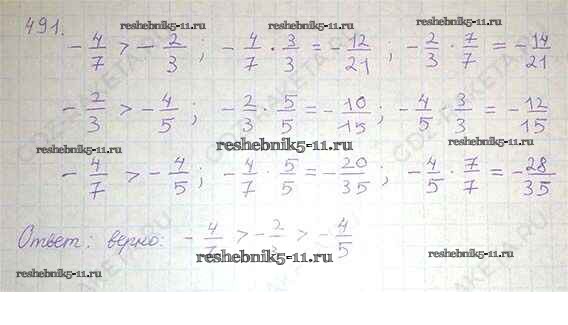 491.
reshebnik5-11.ru reshebnik5-11.ru
-4/7 > -2/3; -4/7 · 3/3 = -12/21; -2/3 · 7/7 = -14/21
-2/3 > -4/5; -2/3 · 5/5 = -10/15; -4/5 · 3/3 = -12/15
reshebnik5-11.ru reshebnik5-11.ru reshebnik5-11.ru
-4/7 > -4/5; -4/7 · 5/5 = -20/35; -4/5 · 7/7 = -28/35
Ответ: верно: -4/7 > -2/3 > -4/5
reshebnik5-11.ru reshebnik5-11.ru reshebnik5-11.ru